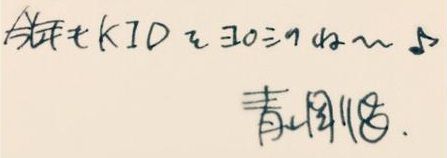 今年もKIDをヨロシクね〜♪
青山剛昌.